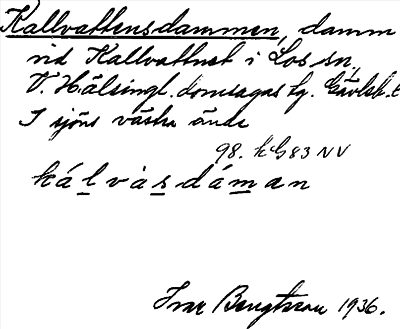 Kallvattensdammen, damm
vid Kallvattnet i Los sn,
V. Hälsingl. domsagas tg. Gävleb. l
I sjöns västra ände
98. KG 83 NV
kálvàsdáman
Ivar Bengtsson 1936.